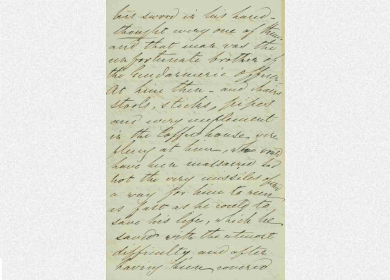 his sword in his hand -
thought every one of them
and that man was the
unfortunate brother of
the Gendarmerie officer
At him then - and chairs
stools, sticks, pipes
and every implement
in the Coffee house were
flung at him, who would
have been massacred had
not the very missiles
a way for him to run
as fast as he could to
save his life, which he
saved with the utmost
difficulty, and after
having been covered